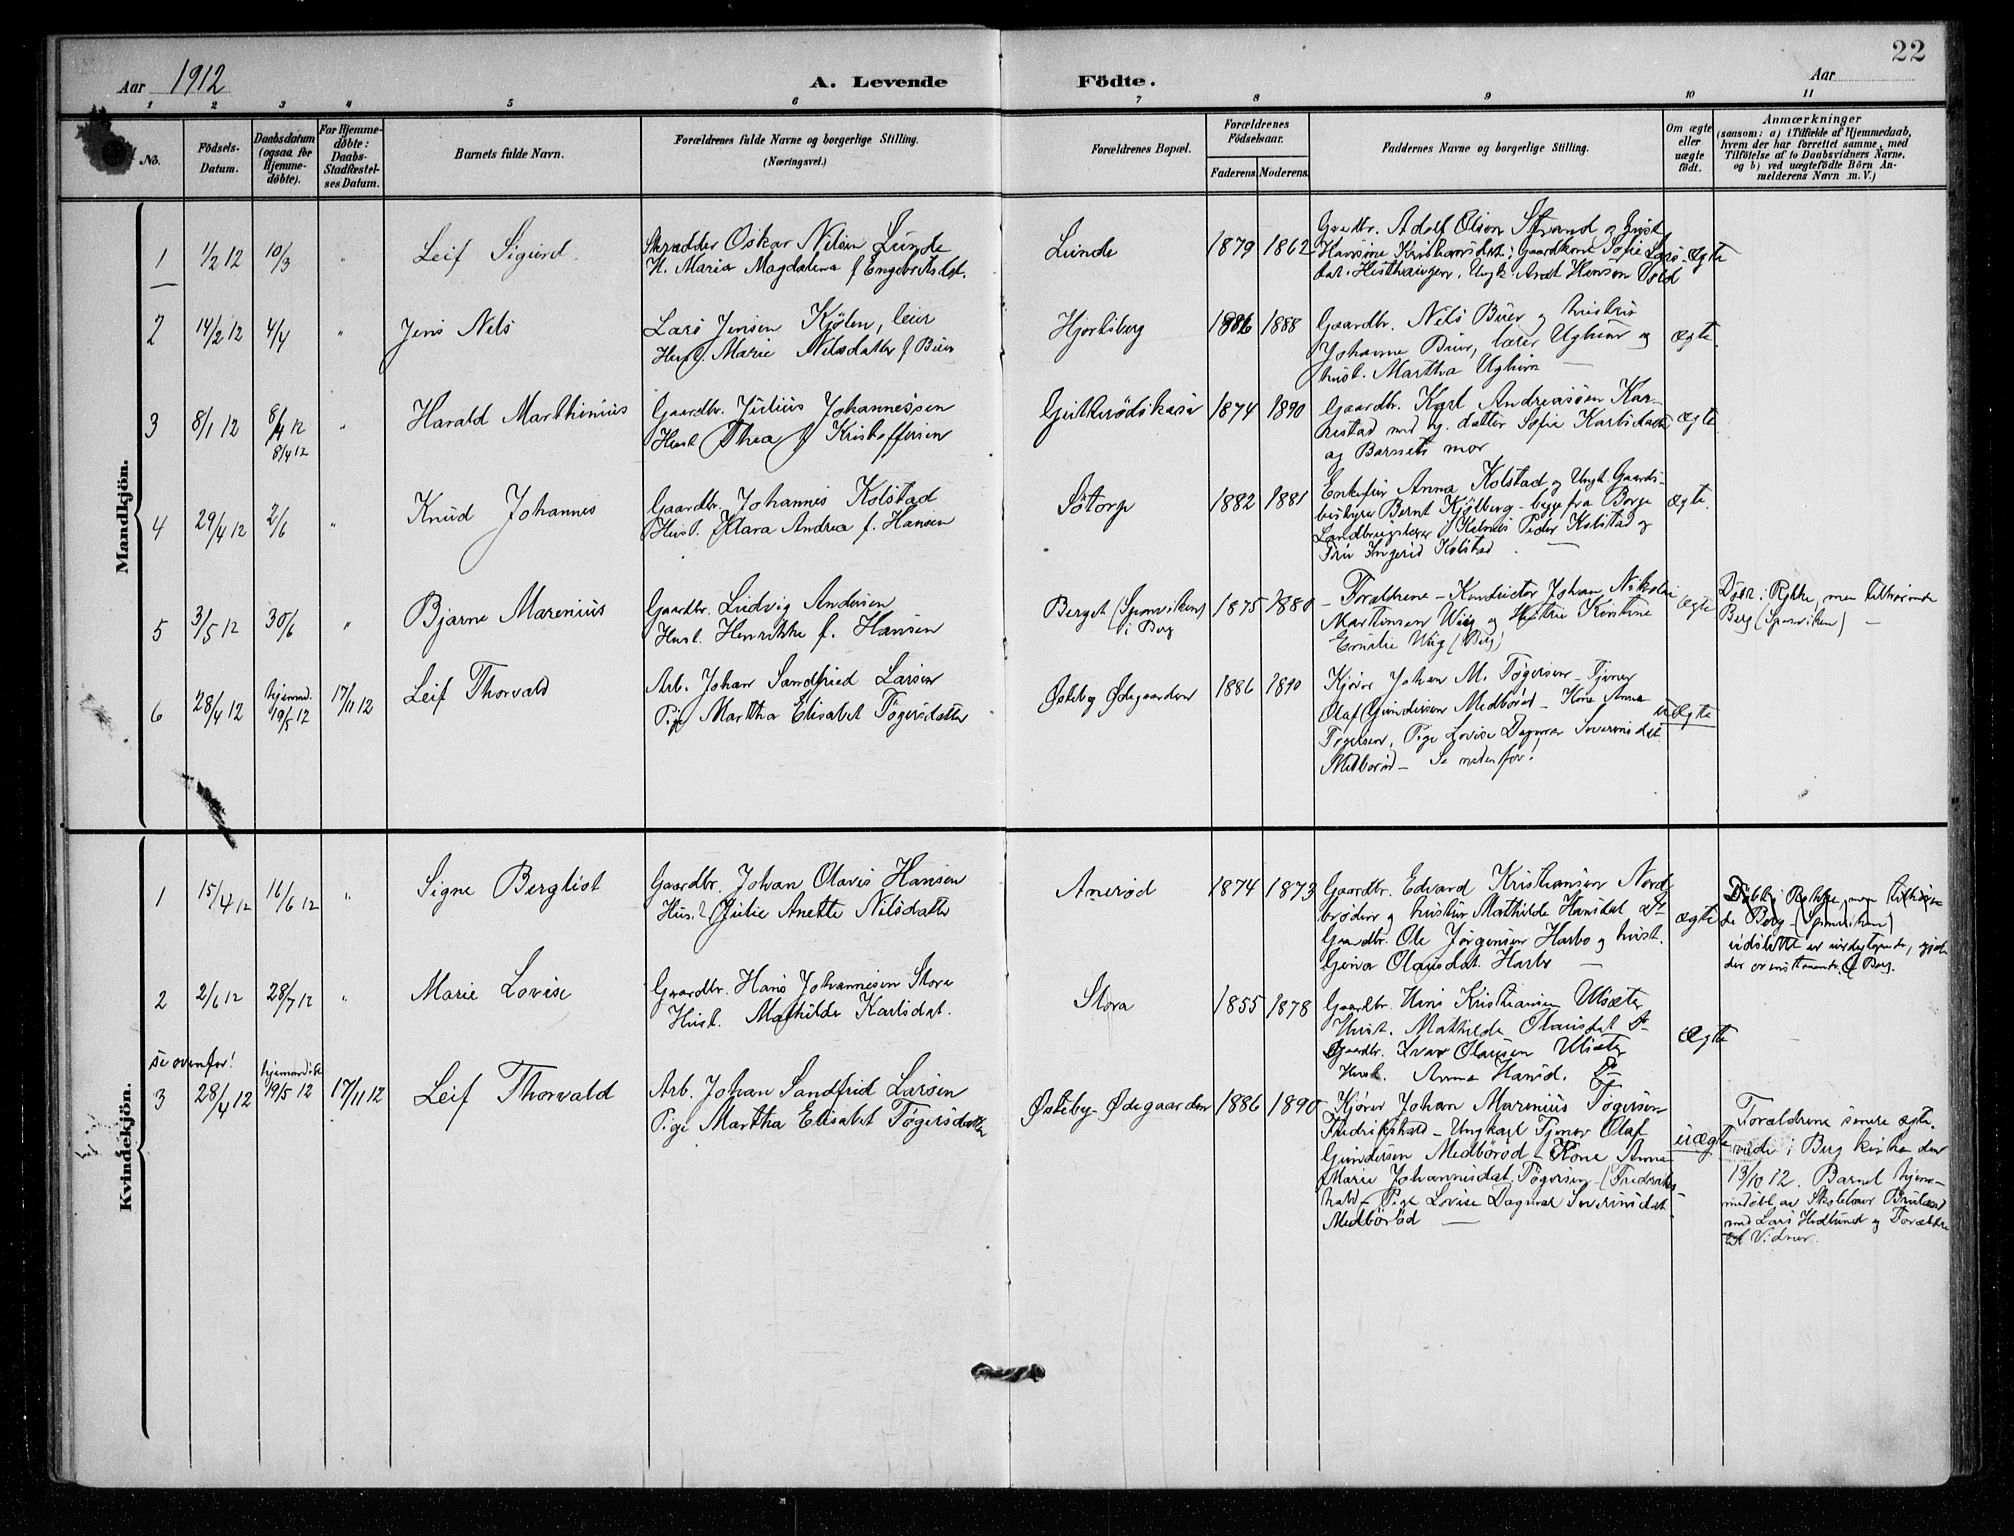 22
Aar 1912
A. Levende Födte.
Aar
1 2 3 4 5 6 7 8 9 10 11
Nö.
Födsels-Datum.
Daabsdatum (ogsaa for Hjemmedøbte).
For Hjemmedøbte: Daabs-Stadfæstelses Datum.
Barnets fulde Navn.
Forældrenes fulde Navne og borgerlige Stilling.
(Næringsvei.)
Forældrenes Bopæl.
Forældrenes Födselsaar.
Faderens. Moderens.
Faddernes Navne og borgerlige Stilling.
Om ægte eller uægte födt.
Anmærkninger
(saasom: a) i Tilfælde af Hjemmedaab,
hvem der har forrettet samme, med
Tilföielse af to Daabsvidners Navne,
og b) ved uægtefödte Börn Anmelderens Navn m. V.)
Mandkjön.
1 1/2 12 10/3 " Leif Sigurd.
Skrædder Oskar Nilsen Lunde
H. Maria Magdalena f. Engebretsdat.
Lunde 1879 1862
Gaardbr. Adolf Olsen Strand og Hust
Kristiansdat. Gaardkone Sofie Lars-
dat. Ungk. Hansen Vold
ægte
2 14/2 12 4/4 " Jens Nils
Lars Jensen Kjölen, leier
Hust. Marie Nilsdatter f. Buer
Hjortsberg 1886 1888
Gaardbr. Nils Buer og hustru
Johanne Buer, lærer og
hust. Martha
ægte.
3 8/1 12 8/4 12 8/4 12 " Harald Marthinius
Gaardbr. Julius Johannessen
Hust. Thea f. Kristoffersen
1874 1890
Gaardbr. Karl Andreasen Kar-
restad med ug. datter Sofie Karlsdatter
og Barnets mor
ægte.
4 29/4 12 2/6 " Knud Johannes
Gaardbr. Johannes Kolstad
Hust. Klara Andrea f. Hansen
Sötorp 1882 1881
Enkefru Anna Kolstad og Ungk. Gaards-
bestyrer Bernt Kjölberg - begge fra Borge
Peder Kolstad og
Fru Ingerid Kolstad. —
ægte.
5 3/5 12 30/6 " Bjarne Marenius
Gaardbr. Ludvig Andersen
Hust. Henrikke f. Hansen
Berget (Sponviken) i Berg 1875 1880
- Forældrene - Konductor Johan Nikolai
Martinsen Wiig og Hustru Kristine
Emilie Wiig (Berg)
ægte
Döbt i Rokke, men tilhörende
Berg (Sponviken) —
6 28/4 12 hjemmd. 19/5 12 17/11 12 Leif Thorvald
Arb. Johan Sandfried Larsen
Pige Martha Elisabet Tøgersdatter
Østeby Ødegaarden 1886 1890
Kjører Johan M. Tøgersen - Tjener
Olaf Gundersen Medbøröd - Kone Anna
Tøgersen, Pige Lovise Dagmar Severinsdat.
Medbøröd - Se nedenfor!
uægte
Kvindekjön.
1 15/4 12 16/6 12 " Signe Bergliot
Gaardbr. Johan Olavis Hansen
Hust. Julie Anette Nilsdatter
Anerød 1874 1873
Gaardbr. Edvard Kristiansen Nord-
brøden og hustru Mathilde Hansdat. st-
Gaardbr. Ole Jørgensen Harbo og hust.
Gina Olausdat. Harbo —
ægte
Döbt i Rokke, men tilhören-
de Berg (Sponviken)
2 2/6 12 28/7 12 " Marie Lovise
Gaardbr. Hans Johannesen Stora
Hust. Mathilde Karlsdat.
Stora 1855 1878
Gaardbr. Hans Kristiansen Ulsæter
Hust. Mathilde Olausdat. Do
Gaardbr. Ivar Olausen Ulsæter
Hust. Anna Hansd. Do
ægte
se ovenfor!
3 28/4 12 hjemmedöbt 19/5 12 17/11 12 Leif Thorvald
Arb. Johan Sandfrid Larsen
Pige Martha Elisabet Tøgersdatter
Østeby-Ødegaarden 1886 1890
Kjører Johan Marenius Tøgersen
Fredrikshald - Ungkarl Tjener Olaf
Gundersen Medbøröd - Kone Anne
Marie Johannesdat. Tøgersen - (Fredriks-
hald - Pige Lovise Dagmar Severinsdat.
Medbøröd —
uægte
Forældrene senere ægte-
viede i Berg kirke den
13/10 12. Barnet hjem-
medöbt av Skolelærer
med Lars Hedlund og Forældre
Vidner.